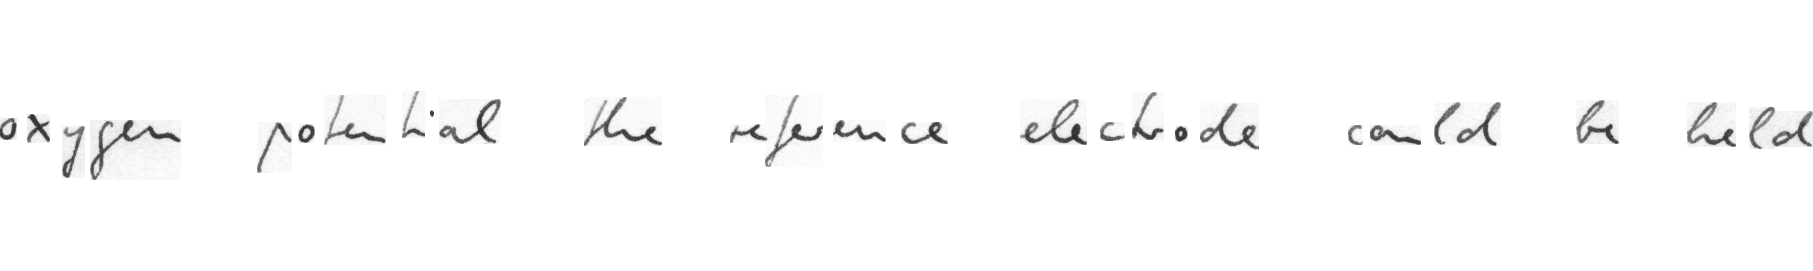 oxygen potential the reference electrode could be held